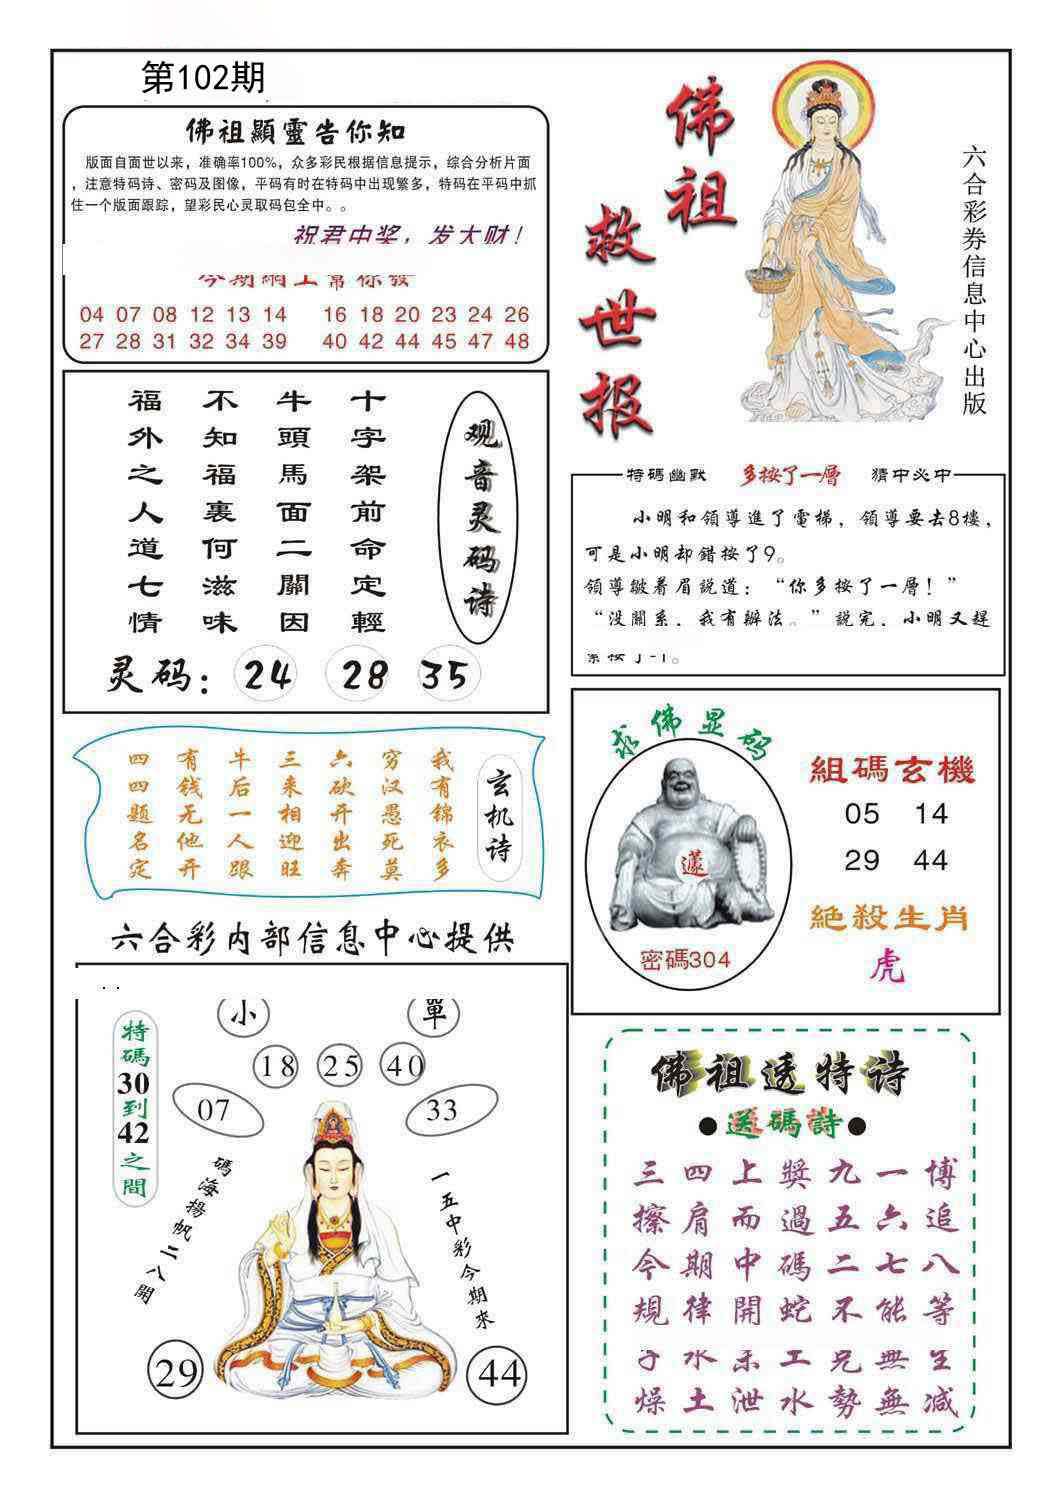 第102期
佛祖顯靈告你知
版面自面世以来，准确率100%，众多彩民根据信息提示，综合分析片面
，注意特码诗、密码及图像，平码有时在特码中出现繁多，特码在平码中抓
住一个版面跟踪，望彩民心灵取码包全中。。
祝君中奖，发大财！
04 07 08 12 13 14 16 18 20 23 24 26
27 28 31 32 34 39 40 42 44 45 47 48
佛祖
救世报
六合彩券信息中心出版
观音灵码诗
十字架前命定輕
牛頭馬面二關因
不知福裏何滋味
福外之人道七情
灵码：24 28 35
特碼幽默 多按了一層 猜中必中
小明和領導進了電梯，領導要去8樓，
可是小明却錯按了9。
領導皺着眉説道：“你多按了一層！”
“没關系，我有辦法。”説完，小明又趕
玄机诗
我有锦衣多
穷汉愚死莫
六砍开出奔
三来相迎旺
牛后一人跟
有钱无他开
四四题名定
求佛显码
密碼304
組碼玄機
05 14
29 44
絶殺生肖
虎
六合彩内部信息中心提供
小 單
18 25 40
07 33
特碼30到42之間
碼海揚帆二八開
一五中彩今期來
29 44
佛祖透特诗
●送碼詩●
三四上獎九一博
擦肩而過五六追
今期中碼二七八
規律開蛇不能等
燥土泄水勢無减